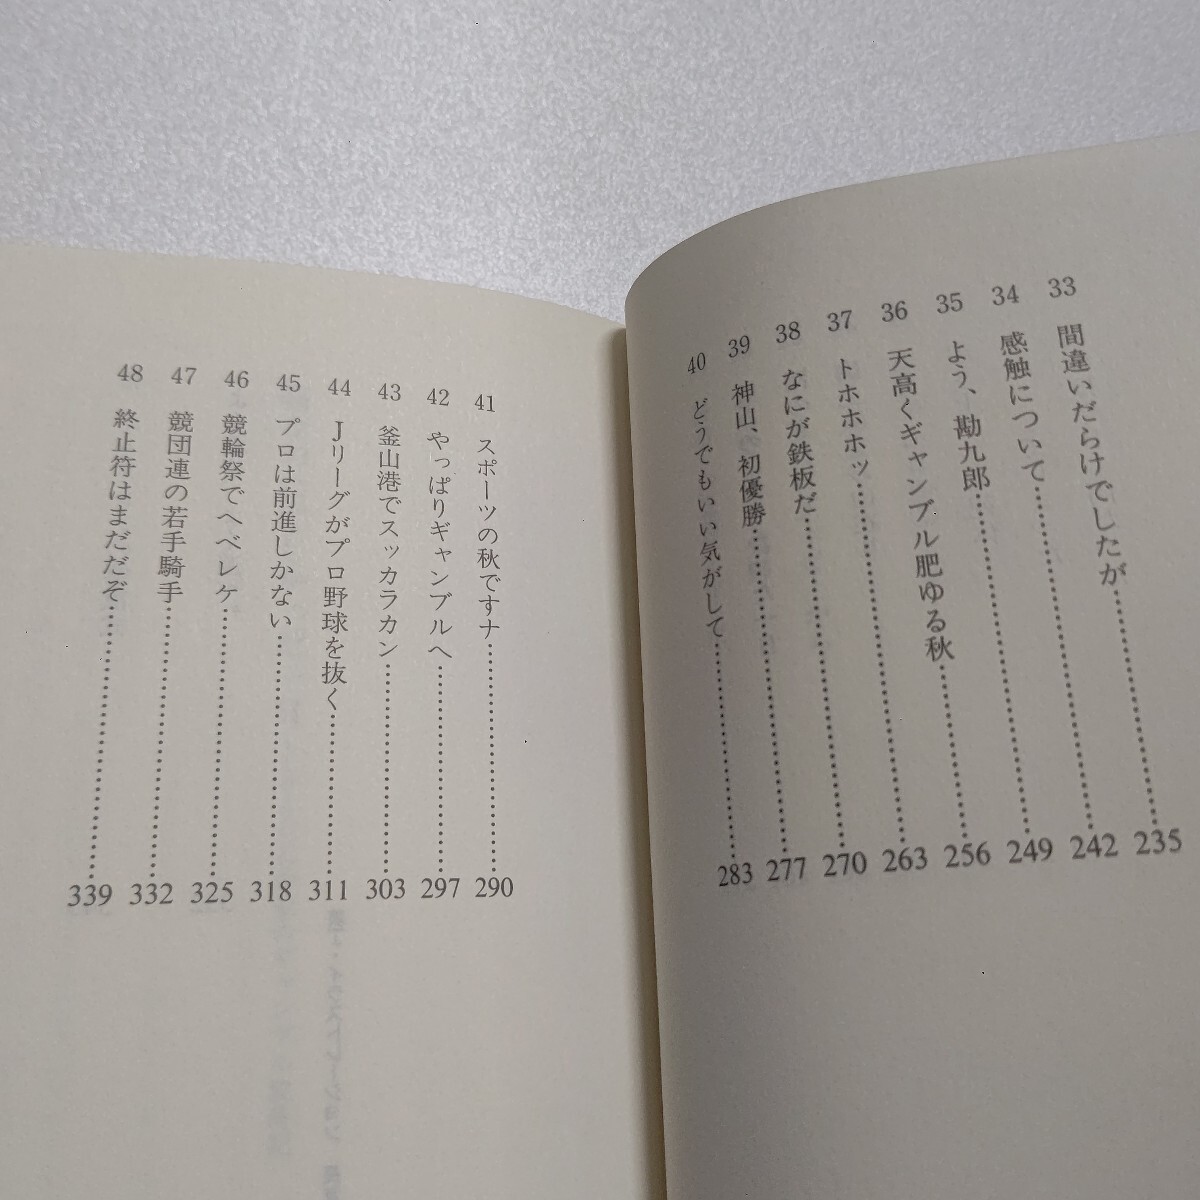 33 間違いだらけでしたが……235
34 感触について……242
35 よう、勘九郎……249
36 天高くギャンブル肥ゆる秋……256
37 トホホホッ……263
38 なにが鉄板だ……270
39 神山、初優勝……277
40 どうでもいい気がして……283
41 スポーツの秋ですナ……290
42 やっぱりギャンブルへ……297
43 釜山港でスッカラカン……303
44 Jリーグがプロ野球を抜く……311
45 プロは前進しかない……318
46 競輪祭でヘベレケ……325
47 競団連の若手騎手……332
48 終止符はまだだぞ……339